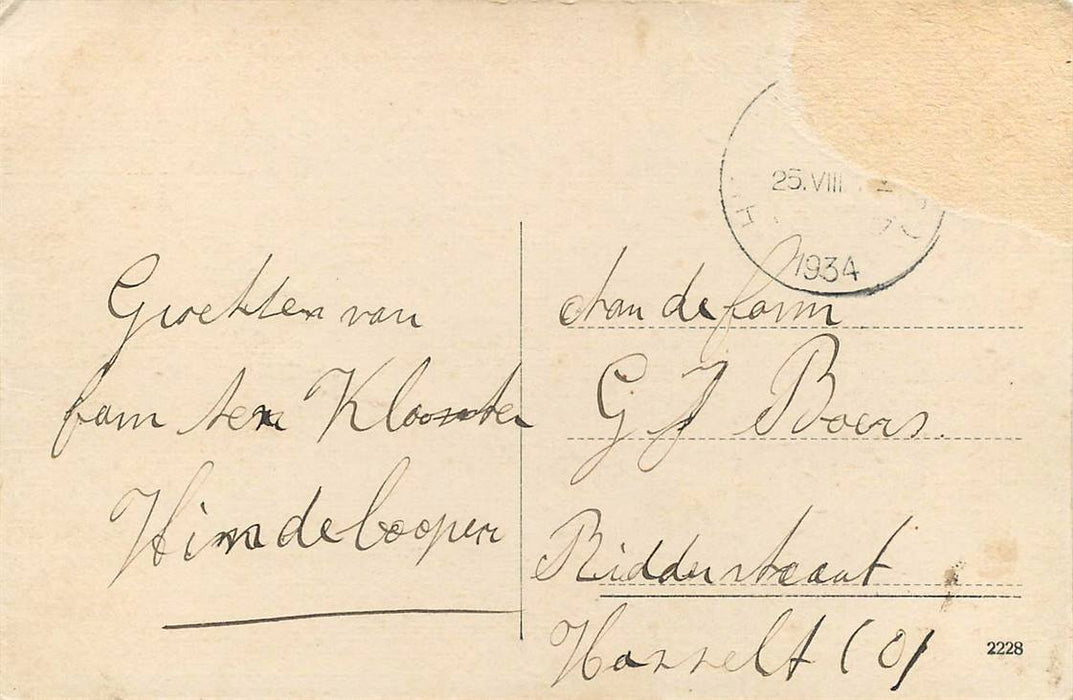 25.VIII
1934
Groetten van
fam ten Klooster
Hindeloopen
Aan de fam
G J Boers.
Ridderstraat
Hasselt (O)
2228